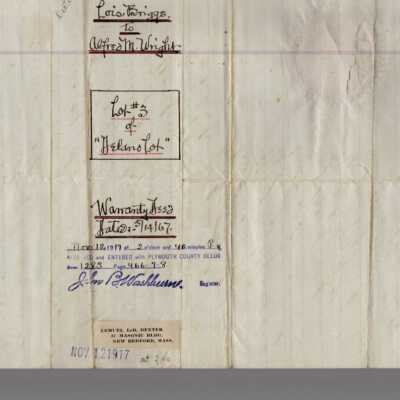 Lois Briggs.
to
Alfred M. Wright.
Lot #3
of
"Delano Lot"
Warranty Deed
Dated: 5/14/67.
Nov 12 1917 at 2 o'clock and 46 minutes P M
and ENTERED with PLYMOUTH COUNTY DEEDS
Book 1285 Page 466-7-8
John B Washburn. Register.
LEMUEL LeB. DEXTER
MASONIC BLDG.
NEW BEDFORD, MASS.
NOV 12 1917
at